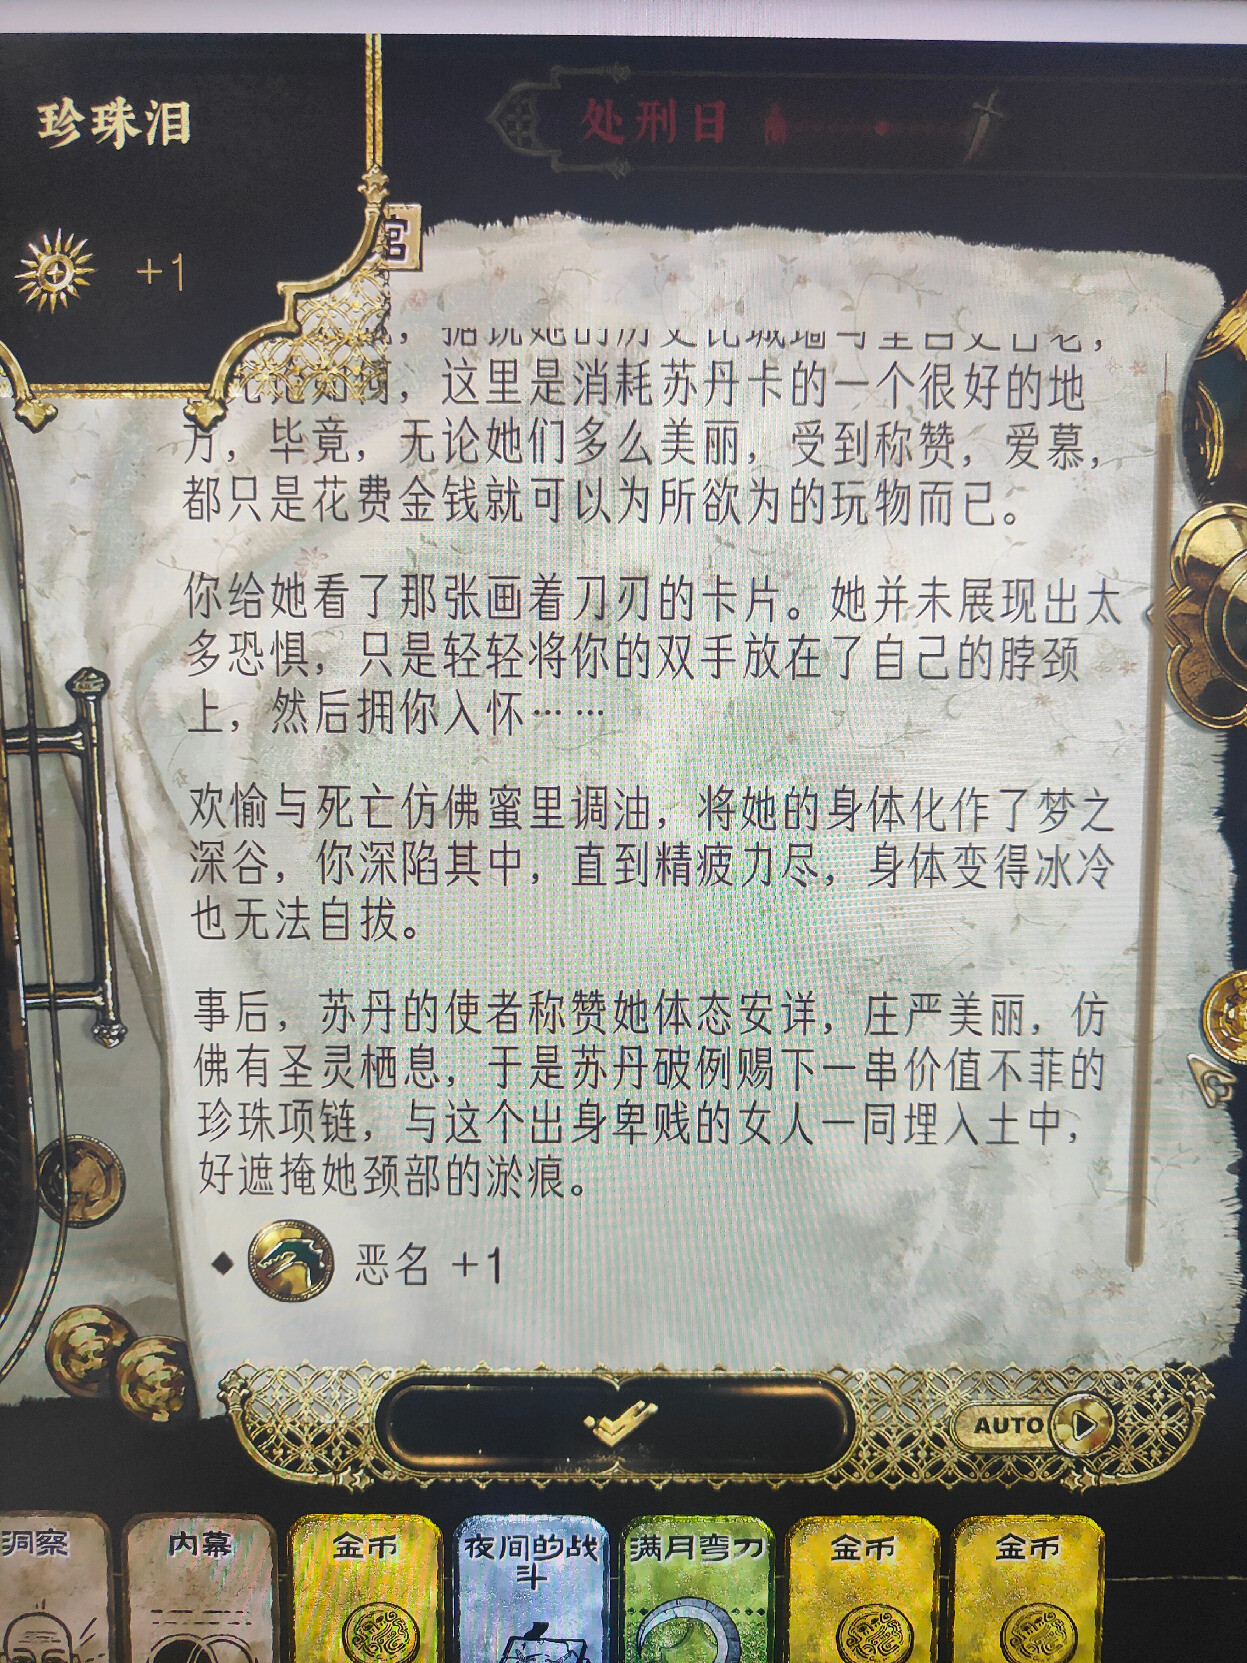 珍珠泪
处刑日
+1
官
据说她的历史比城墙与圣日更古老，
这里是消耗苏丹卡的一个很好的地
方，毕竟，无论她们多么美丽，受到称赞，爱慕，
都只是花费金钱就可以为所欲为的玩物而已。
你给她看了那张画着刀刃的卡片。她并未展现出太
多恐惧，只是轻轻将你的双手放在了自己的脖颈
上，然后拥你入怀……
欢愉与死亡仿佛蜜里调油，将她的身体化作了梦之
深谷，你深陷其中，直到精疲力尽，身体变得冰冷
也无法自拔。
事后，苏丹的使者称赞她体态安详，庄严美丽，仿
佛有圣灵栖息，于是苏丹破例赐下一串价值不菲的
珍珠项链，与这个出身卑贱的女人一同埋入土中，
好遮掩她颈部的淤痕。
恶名 +1
AUTO
洞察
内幕
金币
夜间的战
斗
满月弯刀
金币
金币